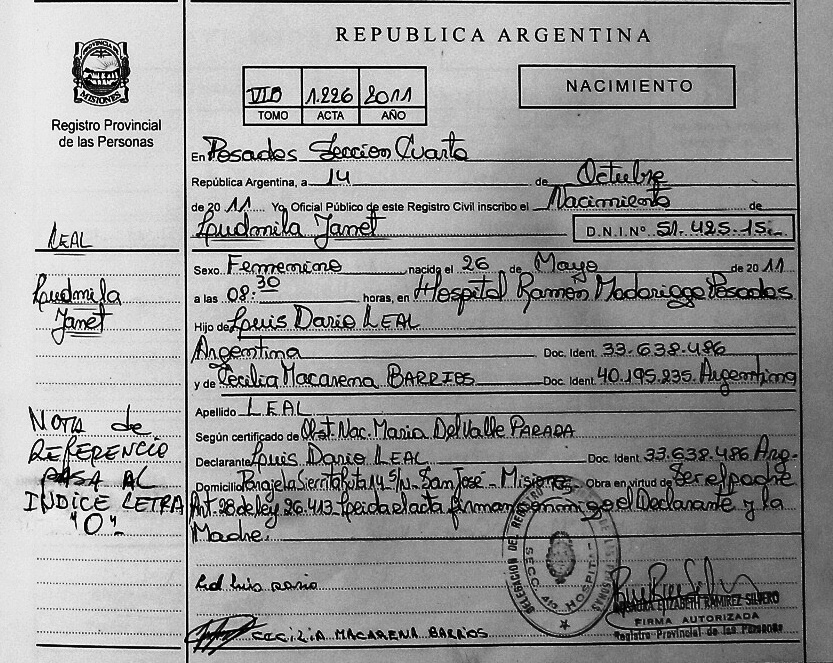 REPUBLICA ARGENTINA
PROVINCIA DE
MISIONES
Registro Provincial
de las Personas
VIIº 1.226 2011
TOMO ACTA AÑO
NACIMIENTO
En Posadas Seccion Cuarta
República Argentina, a 14 de Octubre
de 2011 Yo Oficial Público de este Registro Civil inscribo el Nacimiento de
Ludmila Janet D.N.I.Nº 51.425.15.-
LEAL
Ludmila
Janet
Sexo Femenino nacida el 26 de Mayo de 2011
a las 08:30 horas, en Hospital Ramón Madariaga Posadas
Hijo de Luis Dario LEAL
Argentina Doc. Ident. 33.638.486
y de Cecilia Macarena BARRIOS Doc. Ident. 40.195.235 Argentina
Apellido LEAL
Según certificado de Obst. Nac. Maria Del Valle PARADA
Declarante Luis Dario LEAL Doc. Ident. 33.638.486 Arg.
Domicilio Sierrita Ruta 14 S/N - San José - Misiones Obra en virtud de Ser el padre
Art. 28 de ley 26.413. Leida el acta firman conmigo el Declarante y la
Madre.
NOTA de
REFERENCIA
PASA AL
INDICE LETRA
"O"
Leal Luis Dario
CECILIA MACARENA BARRIOS
DELEGACION DEL REGISTRO DE LAS PERSONAS
SECC. 4ta. HOSPIT
ELIZABETH RAMIREZ SILVERO
FIRMA AUTORIZADA
Registro Provincial de las Personas